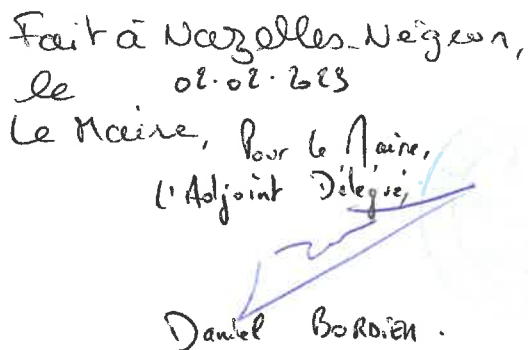 Fait à Nazelles-Négron,
le 02.02.2023
Le Maire, Pour le Maire,
l'Adjoint Délégué,
Daniel BORDIER.